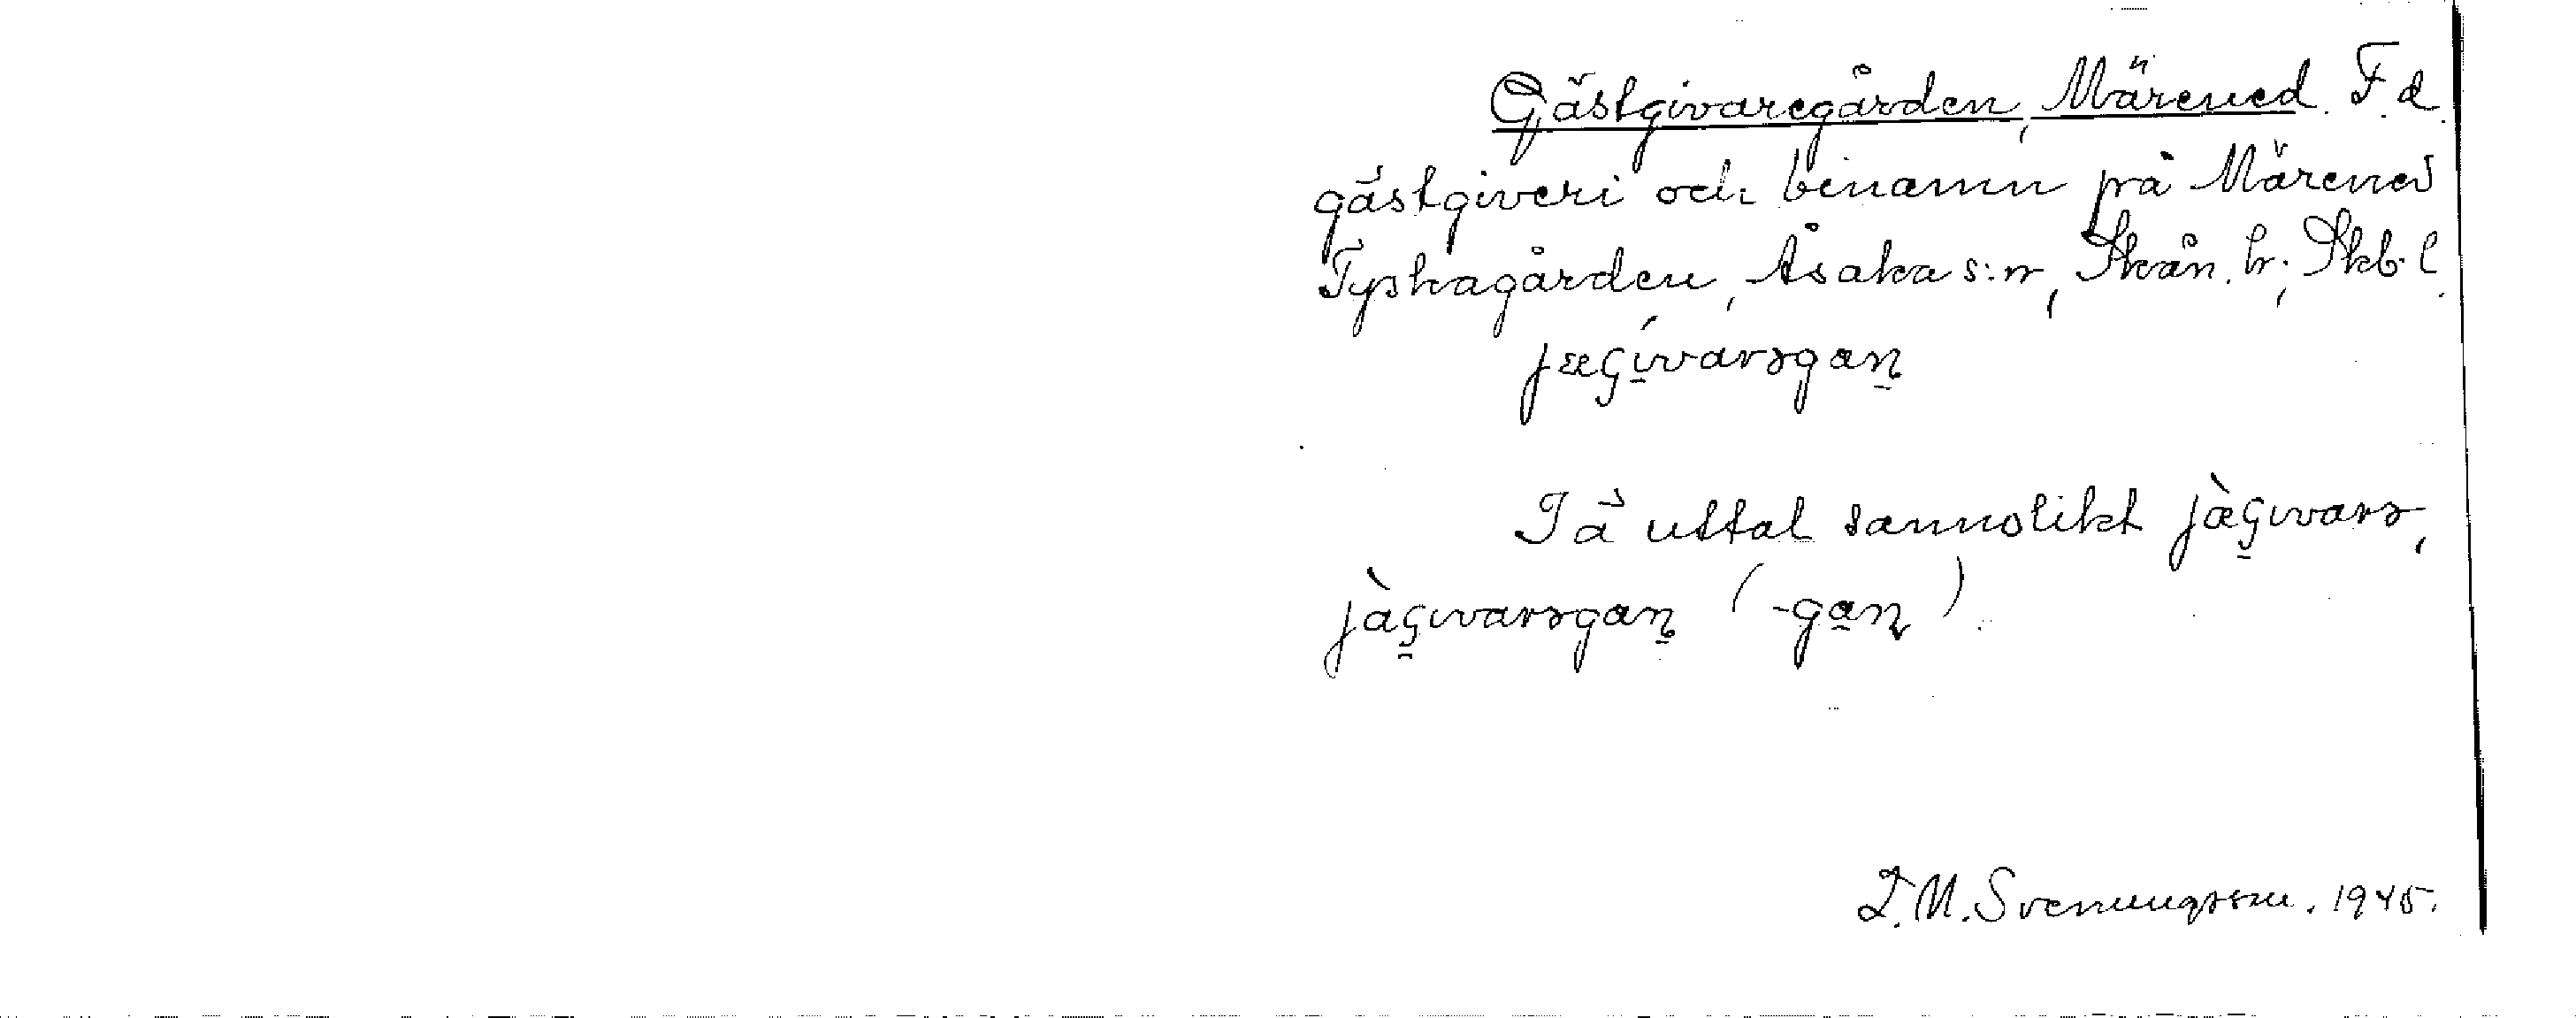 Gästgivaregården, Märened. F.d.
gästgiveri och binamn på Märened
Tyskagården, Åsaka s:n, Skån. h., Skb. l.
jæɢívarəgaṉ
I ä uttal sannolikt jæ̀ɢ̱ivarə,
jàɢ̱ivarəgaṉ (-ga̱n)
L. M. Svenungsson. 1945.